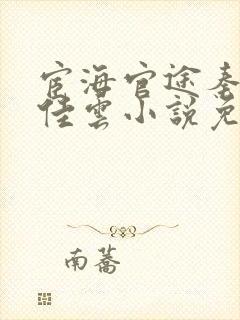 宦海官途秦
佳雲小說免
南蕎